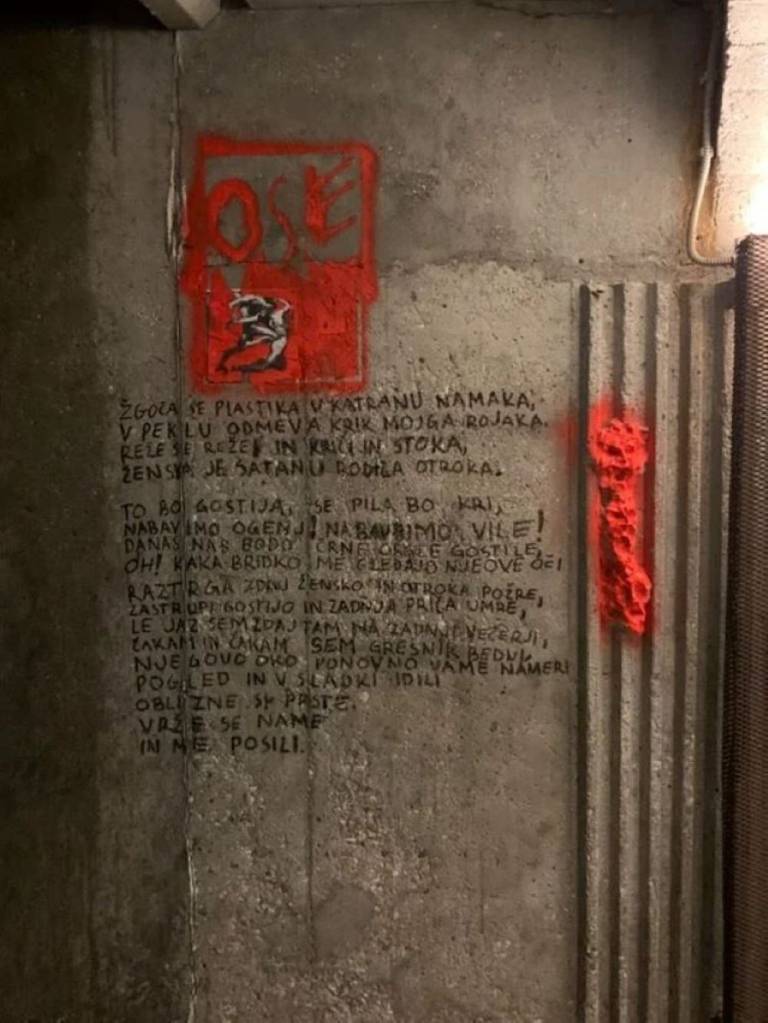 OSE
ŽGOČA SE PLASTIKA V KATRANU NAMAKA,
V PEKLU ODMEVA KRIK MOJGA ROJAKA.
REŽE SE REŽE IN KRIČI IN STOKA,
ŽENSKA JE SATANU RODILA OTROKA.
TO BO GOSTIJA, SE PILA BO KRI,
NABAVIMO OGENJ! NABAVBIMO VILE!
DANAS NAS BODO ČRNE GOSTILE,
OH! KAKA BRIDKO ME GLEDAJO NJEOVE OČI
RAZTRGA ZDAJ ŽENSKO IN OTROKA POŽRE,
ZASTRUPI GOSTIJO IN ZADNJA PRIČA UMRE,
LE JAZ SEM ZDAJ TAM NA ZADNJI VEČERJI,
ČAKAM IN ČAKAM SEM GREŠNIK BEDNI,
NJEGOVO OKO PONOVNO VAME NAMERI
POGLED IN V SLADKI IDILI
OBLIZNE SI PRSTE.
VRŽE SE NAME
IN ME POSILI.